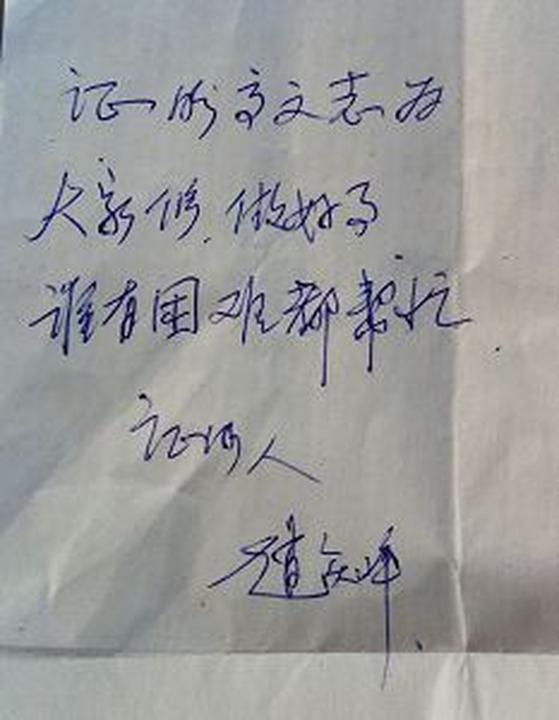 证明高文志为
大家修.做好了
谁有困难都帮忙.
证明人
赵